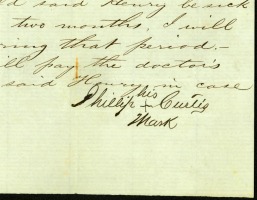 d said Henry be sick
two months. I will
ring that period.—
ll pay the doctor's
said Henry, in case
his
Phillip + Curtis
Mark